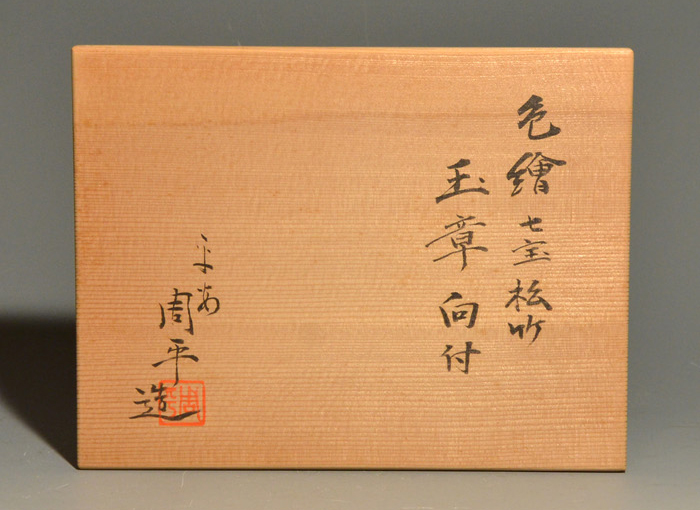 色繪七宝松竹
玉章向付
平安
周平造
周平